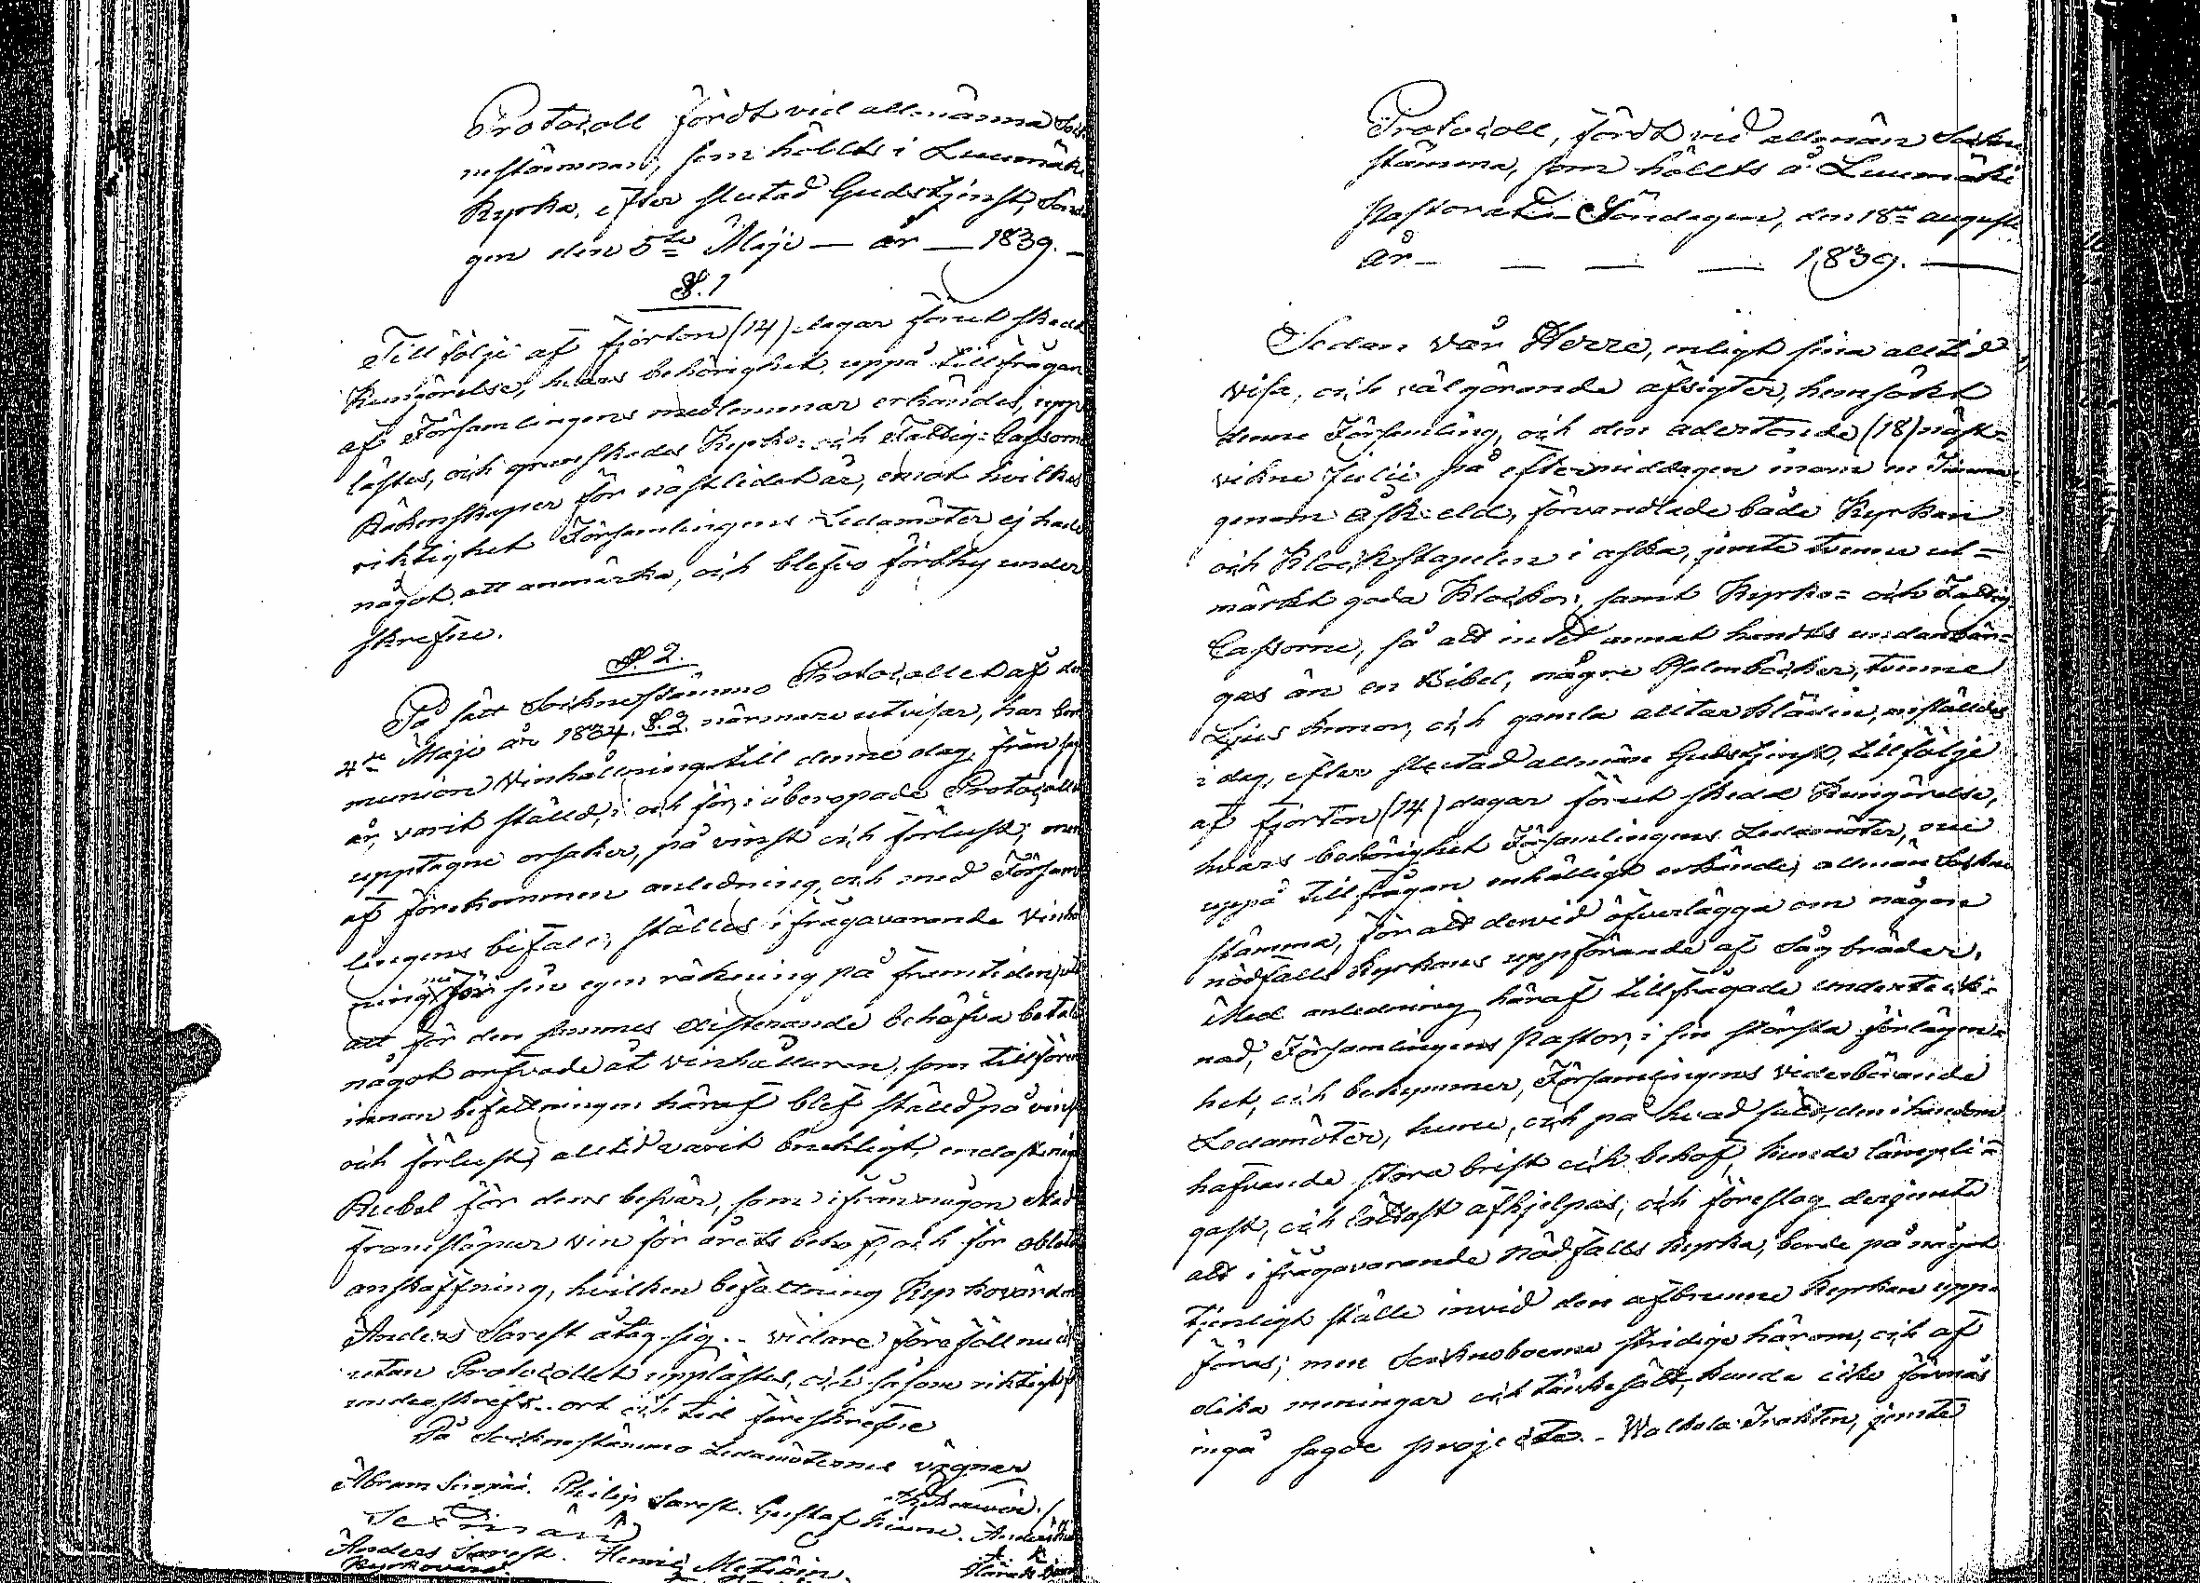 Protocoll fördt vid allmänna Sock
nestämman, som hölles i Luumäki
Kyrka, efter slutad Gudstjenst, Sönda
gen den 5te Maji — år — 1839. —
§. 1
Till följe af fjorton (14) dagar förut skedd
Kungörelse, hvars behörighet, uppå tillfrågan
af Församlingens medlemmar erkändes, upp
lästes, och granskades Kyrko- och Fattig-Cassorne
Räkenskaper för nästledet år, emot hvilkas
riktighet Församlingens Ledamöter ej hade
något att anmärka, och blefvo förthy under
skrefne.
§. 2.
På sätt Socknestämmo Protocollet af den
4de Maji år 1834, §. 2. närmare utvisar, har Com
munion Vinhållning till denne dag, från sag
år, varit ställd, och för, i åberopade Protocollet
upptagne orsaker, på vinst och förlust; men
af förekommen anledning, och med Försam
lingens bifall, ställes ifrågavarande Vinhå
ning nu för sin egen räkning på framtiden, utan
att för den summes existerande behöfva betala
något arfvode åt vinhållaren, som tillföre
innan befattningen häraf blef ställd på vinst
och förlust, alltid varit brukligt, endast nio
Rubel för dens besvär, som ifrån någon Stad
framskaffar vin för årets behof, och för oblaters
anskaffning, hvilken befattning Kyrkovärden
Anders Sarest åtog sig. - vidare föreföll nu ej
utan Protocollet upplästes, och såsom riktigt
underskrefs. ort och tid föreskrefne
På Socknestämmo Ledamöternes vägnar
Abram Philip Sarest. Gustaf Anders
Sexman
Anders Sarest. Henric
Kyrkovärd.
Protocoll, fördt vid allmän Sockne
stämma, som hölls å Luumäki
Pastorat Söndagen, den 18de Augusti
År — — — — 1839. —
Sedan vår Herre, enligt sina alltid
visa, och välgörande afsigter, hemsökt
denne Församling, och den adertonde (18) näst=
vikne Julii på eftermiddagen inom en Timma
genom åsk-eld, förvandlade både Kyrkan
och Klockstapelen i aska, jemte tvenne ut=
märkt goda Klockor, samt Kyrko= och Fattig
Cassorne, så att intet annat hendts undanbär=
gas än en Bibel, några Psalmböcker, tvenne
Ljus kronor, och gamla altar kläden, anställdes
i dag, efter slutad allmän Gudstjenst, till följe
af fjorton (14) dagar förut skedd Kungörelse,
hvars behörighet Församlingens Ledamöter, nu
uppå tillfrågan enhälligt erkände, allmän Sockne
stämma, för att dervid öfverlägga om någon
nödfalls Kyrkans uppförande af Såg bräder.
Med anledning häraf tillfrågade underteck=
nad, Församlingens Pastor, i sin största förlägen=
het, och bekymmer, Församlingens vederbörande
Ledamöter, huru, och på hvad sätt, den ihändom
hafvande stora brist och behof, kunde lämpli=
gast, och lättast afhjelpas, och föreslog derjemte
att ifrågavarande nödfalls Kyrka, borde på något
tjenligt ställe invid den afbrunne Kyrkan upp=
föras; men Socknoboerne stridige härom, och af
olika meningar och tänkesätt, kunde icke förmås
ingå sagde projecte. - Walkola Trakten, jemte